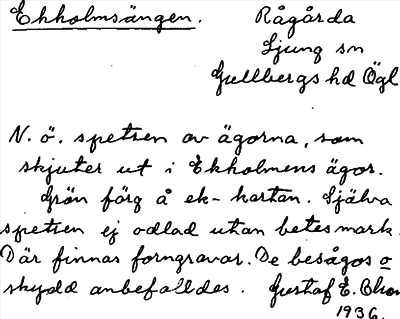 Ekholmsängen. Rågårda
Ljung sn
Gullbergs hd Ögl
N. ö. spetsen av ägorna, som
skjuter ut i Ekholmens ägor.
Grön färg å ek-kartan. Själva
spetsen ej odlad utan betesmark.
Där finnas forngravar. De besågos o
skydd anbefalldes. Gustaf E.
1936.